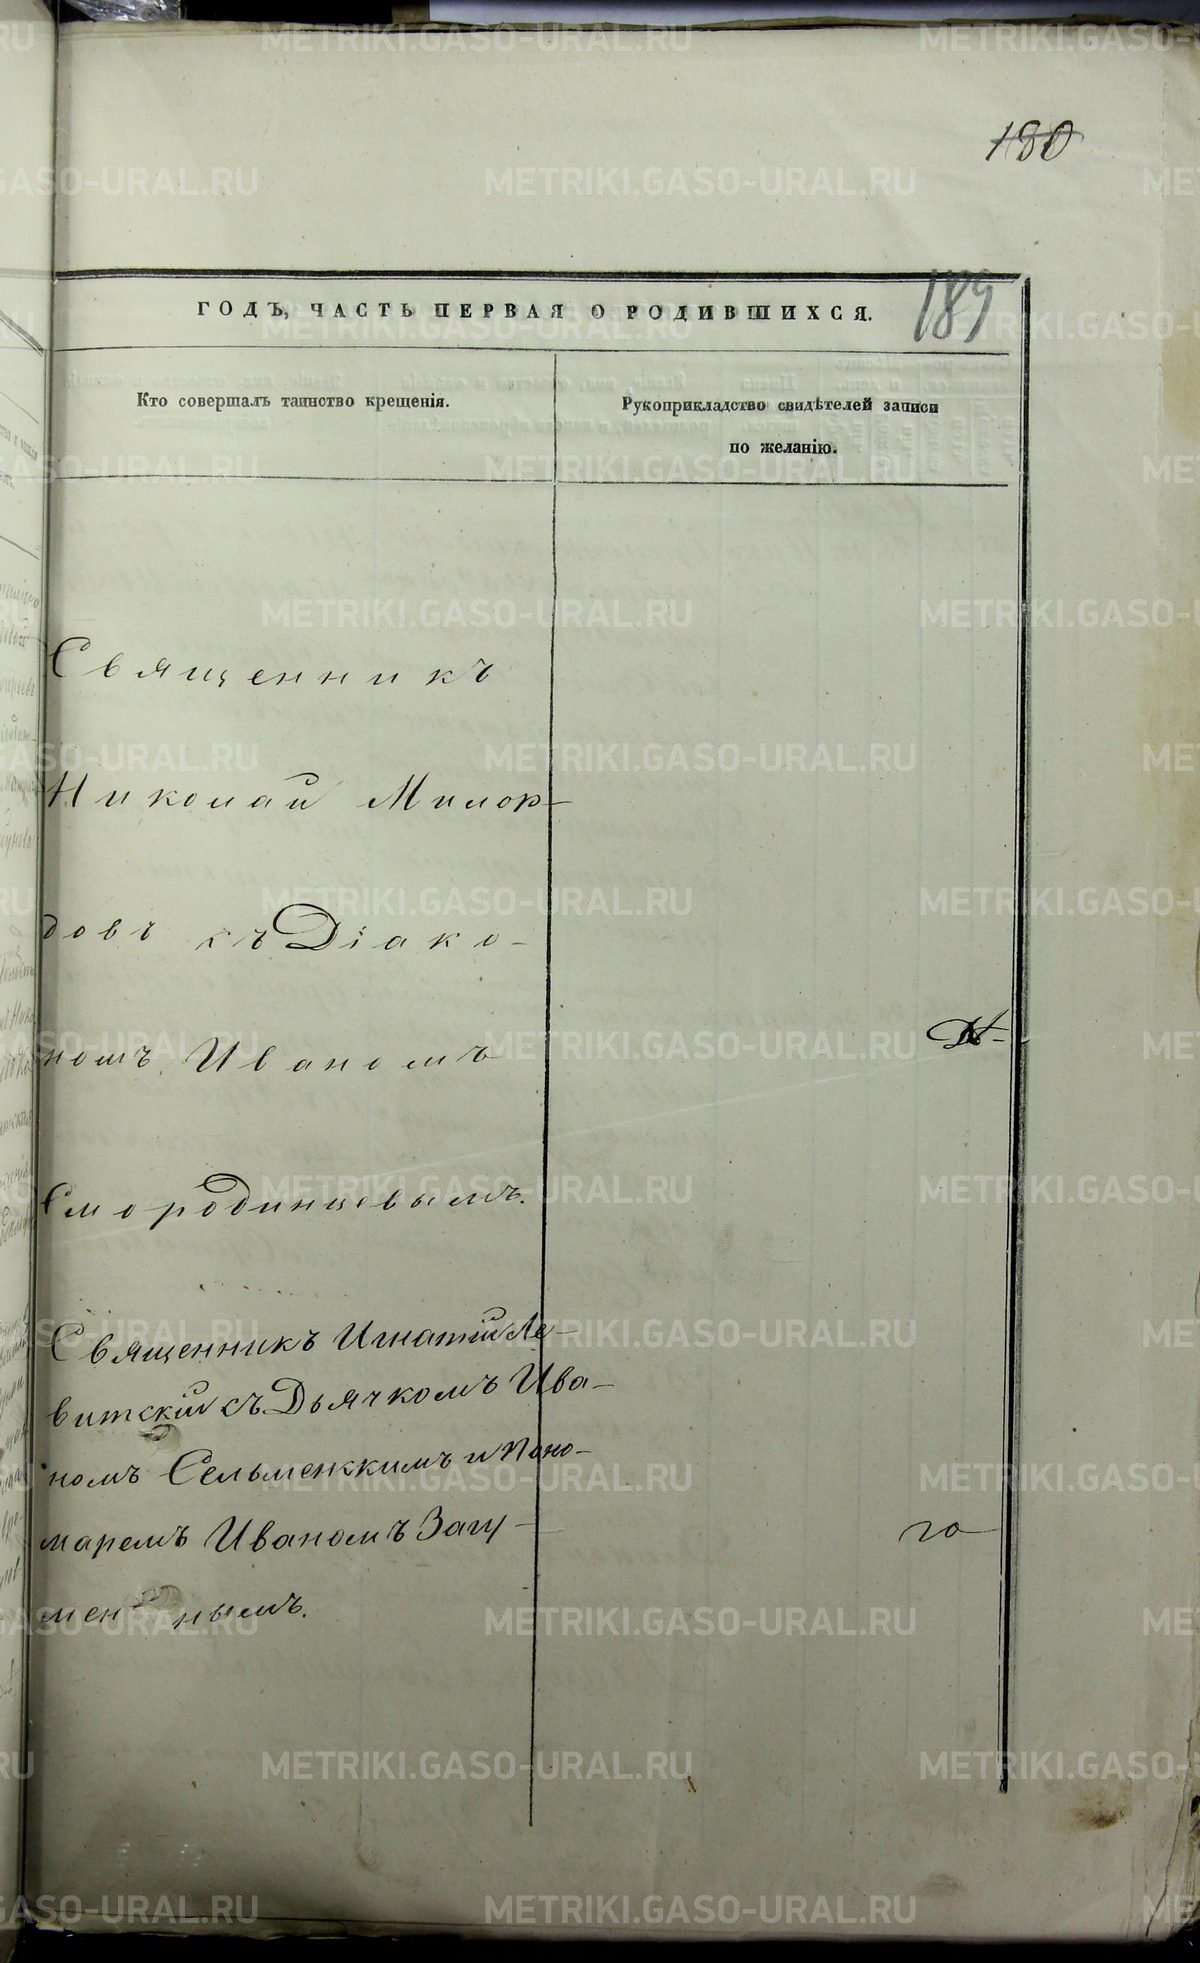 180
189
ГОДЪ, ЧАСТЬ ПЕРВАЯ О РОДИВШИХСЯ.
Кто совершалъ таинство крещенія.
Рукоприкладство свидѣтелей записи
по желанію.
Священникъ
Николай Милор-
довъ съ Діако-
номъ Иваномъ
Смородинцевымъ.
Священникъ Игнатій Ле-
витскій съ Дьячкомъ Ива-
номъ Сельменскимъ и Поно-
маремъ Иваномъ Загу-
меннымъ.
го
METRIKI.GASO-URAL.RU